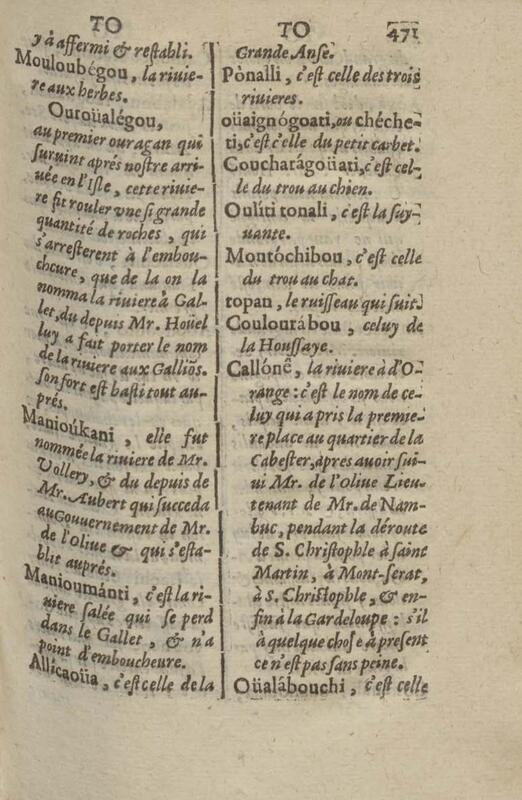 TO
y à affermi & restabli.
Mouloubégou, la riuie-
re aux herbes.
Ouroüalégou,
au premier ouragan qui
suruint aprés nostre arri-
uée en l'Isle, cette riuie-
re fit rouler vne si grande
quantité de roches, qui
s'arresterent à l'embou-
cheure, que de la on la
nomma la riuiere à Gal-
let, du depuis Mr. Hoüel
luy a fait porter le nom
de la riuiere aux Galliõs.
son fort est basti tout au-
prés.
Manioúkani, elle fut
nommée la riuiere de Mr.
Vollery, & du depuis de
Mr. Aubert qui succeda
au Gouuernement de Mr.
de l'Oliue & qui s'esta-
blit auprés.
Manioumánti, c'est la ri-
uiere salée qui se perd
dans le Gallet, & n'a
point d'emboucheure.
Allícaoüa, c'est celle de la
TO 471
Grande Anse.
Pònalli, c'est celle des trois
riuieres.
oüaignógoati, ou chéche-
ti, c'est c'elle du petit carbet.
Coucharágoüati, c'est cel-
le du trou au chien.
Oulíti tonali, c'est la suy-
uante.
Montóchibou, c'est celle
du trou au chat.
topan, le ruisseau qui suit.
Coulourábou, celuy de
la Houssaye.
Callónê, la riuiere à d'O-
range: c'est le nom de ce-
luy qui a pris la premie-
re place au quartier de la
Cabester, apres auoir sui-
ui Mr. de l'Oliue Lieu-
tenant de Mr. de Nam-
buc, pendant la déroute
de S. Christophle à saint
Martin, à Mont-serat,
à S. Christophle, & en-
fin à la Gardeloupe: s'il
à quelque chose à present
ce n'est pas sans peine.
Oüalâbouchi, c'est celle